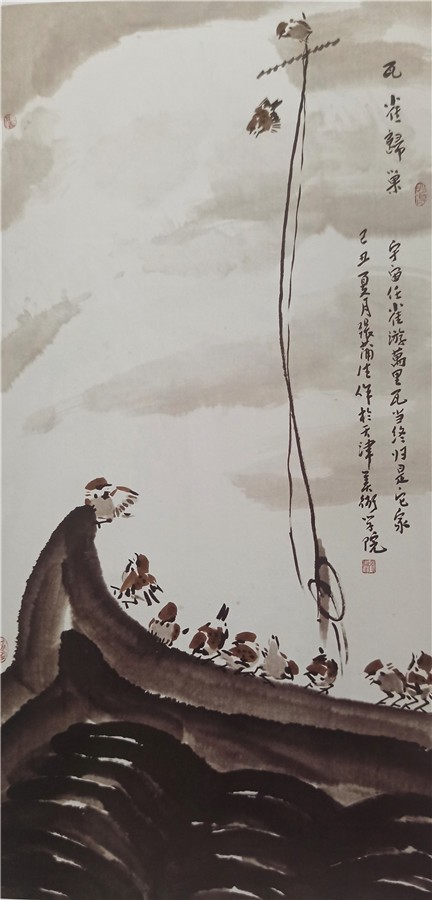 瓦雀歸巢
宇宙任雀游萬里瓦当终归是它家
己丑夏月張蒲生作於天津美術学院